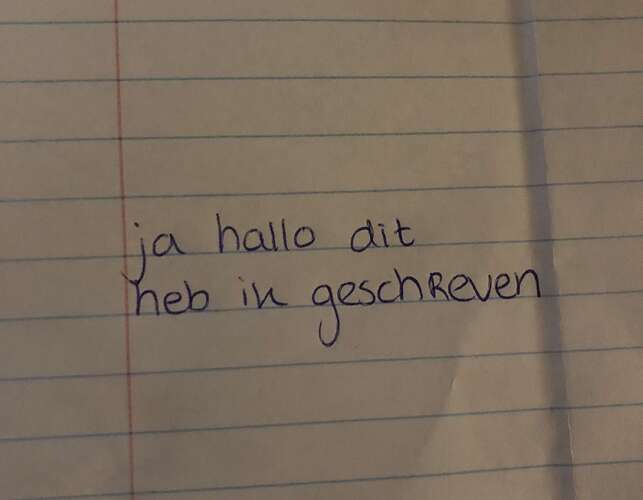 ja hallo dit
heb ik geschreven